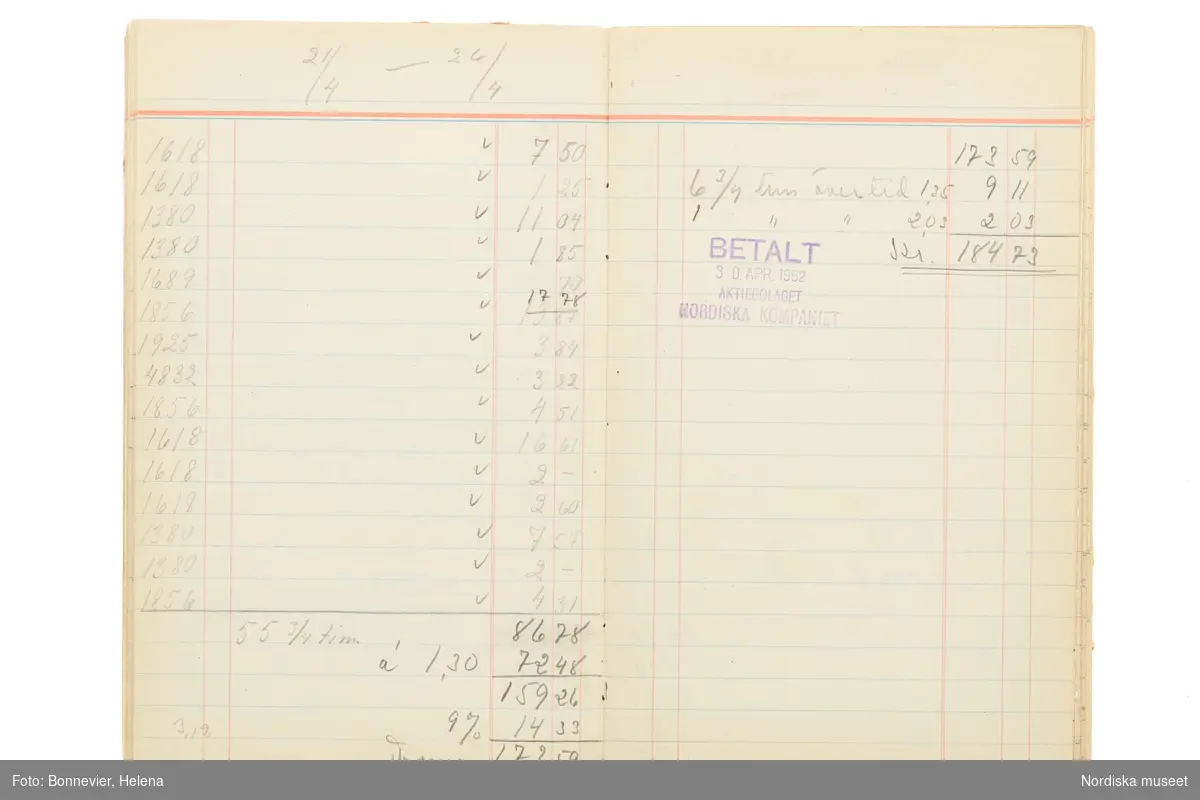 21/4 — 26/4
1618 ✓ 7 50
1618 ✓ 1 25
1380 ✓ 11 04
1380 ✓ 1 85
1689 ✓
17 78
1856 ✓
1925 ✓ 3 84
4832 ✓ 3 22
1856 ✓ 4 51
1618 ✓ 16 61
1618 ✓ 2 —
1618 ✓ 2 60
1380 ✓ 7 57
1380 ✓ 2 —
1856 ✓ 4 31
55 3/4 tim. 86 78
á 1,30 72 48
159 26
3,12 9% 14 33
173 59
173 59
6 3/4 tim övertid 1,35 9 11
1 " " 2,03 2 03
Kr. 184 73
BETALT
30. APR. 1952
AKTIEBOLAGET
NORDISKA KOMPANIET
Foto: Bonnevier, Helena
Nordiska museet